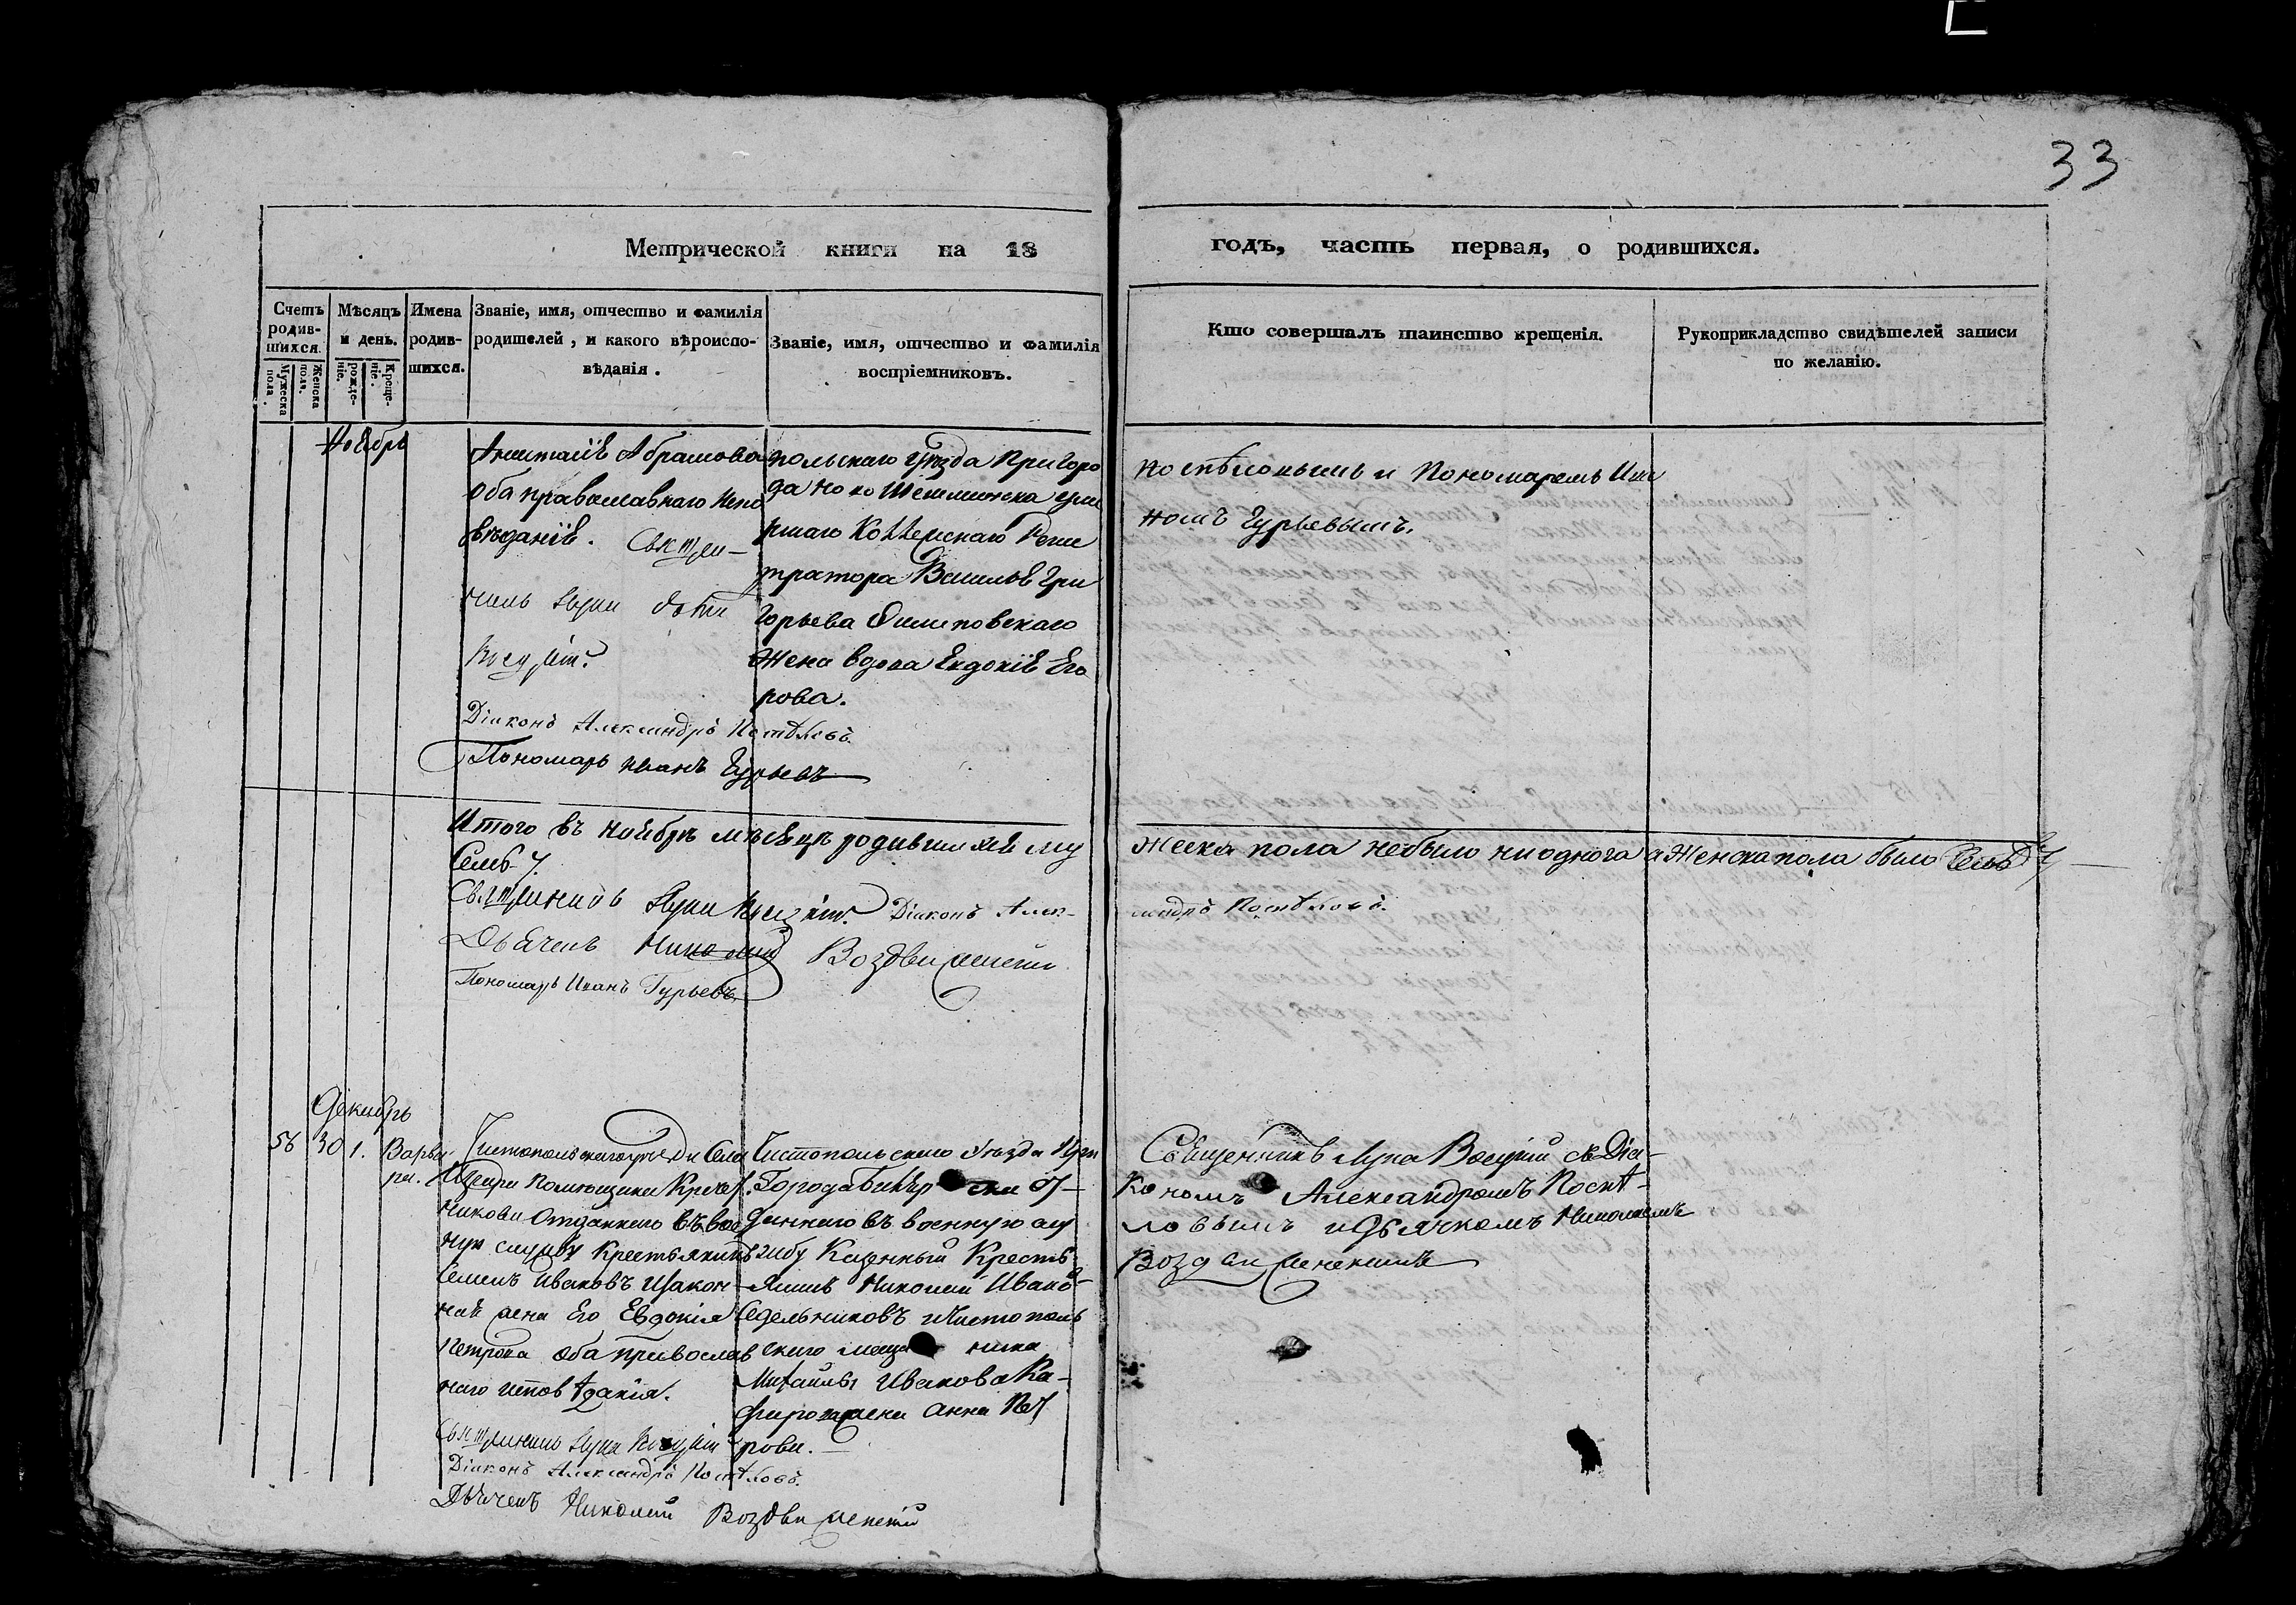 33
Метрической книги на 18
годъ, часть первая, о родившихся.
Счетъ родив-шихся.
Мужеска пола.
Женска пола.
Мѣсяцъ и день.
рожде-нiе.
Креще-нiе.
Имена родив-шихся.
Званiе, имя, отчество и фамилiя
родителей, и какого вѣроиспо-
вѣданiя.
Званiе, имя, отчество и фамилiя
воспрiемниковъ.
Кто совершалъ таинство крещенiя.
Рукоприкладство свидѣтелей записи
по желанiю.
Ноябрь
Абрамова
оба православнаго испо
вѣданiя. Священ-
никъ Лука
Дiаконъ Александръ Поспѣловъ.
Пономарь Иванъ Гурьевъ
польскаго уѣзда Пригоро
да Но во Шешминска уме
ршаго Коллежскаго Реги
тратора Василья Гри
горьева Филиповскаго
жена вдова Евдокiя Его
рова.
Поспѣловымъ и Пономаремъ Ива
номъ Гурьевымъ.
Итого въ ноябрѣ мѣсяцѣ родившихся му
жеска пола небыло ниоднога а Женска пола было Семь 7
Семь 7.
Священникъ Лука Дiаконъ Алек-
сандръ Поспѣловъ.
Дьячекъ Николай Воздвиженскiй
Пономарь Иванъ Гурьевъ.
Декабрь
56 30 1. Варва
ра.
Чистопольскаго уѣзда Села
помѣщика
никова Отданнаго въ воен
ную службу Крестьянинъ
Семенъ Ивановъ Изакон
ная жена Его Евдокiя
Петрова оба православ
наго исповѣданiя.
Священникъ Лука
Дiаконъ Александръ Поспѣловъ.
Дьячекъ Николай Воздвиженскiй
Чистопольскаго Уѣзда При
Города от-
даннаго въ военную слу
жбу Казенный Кресть-
янинъ Николай Ивано
Седельниковъ иЧистополь
скаго ника
Михайлы Иванова
жена Анна Пет
рова.
Священникъ Лука съ Дiа-
кономъ Александромъ Поспѣ-
ловымъ идьячкомъ Николаемъ
Воздвиженскимъ